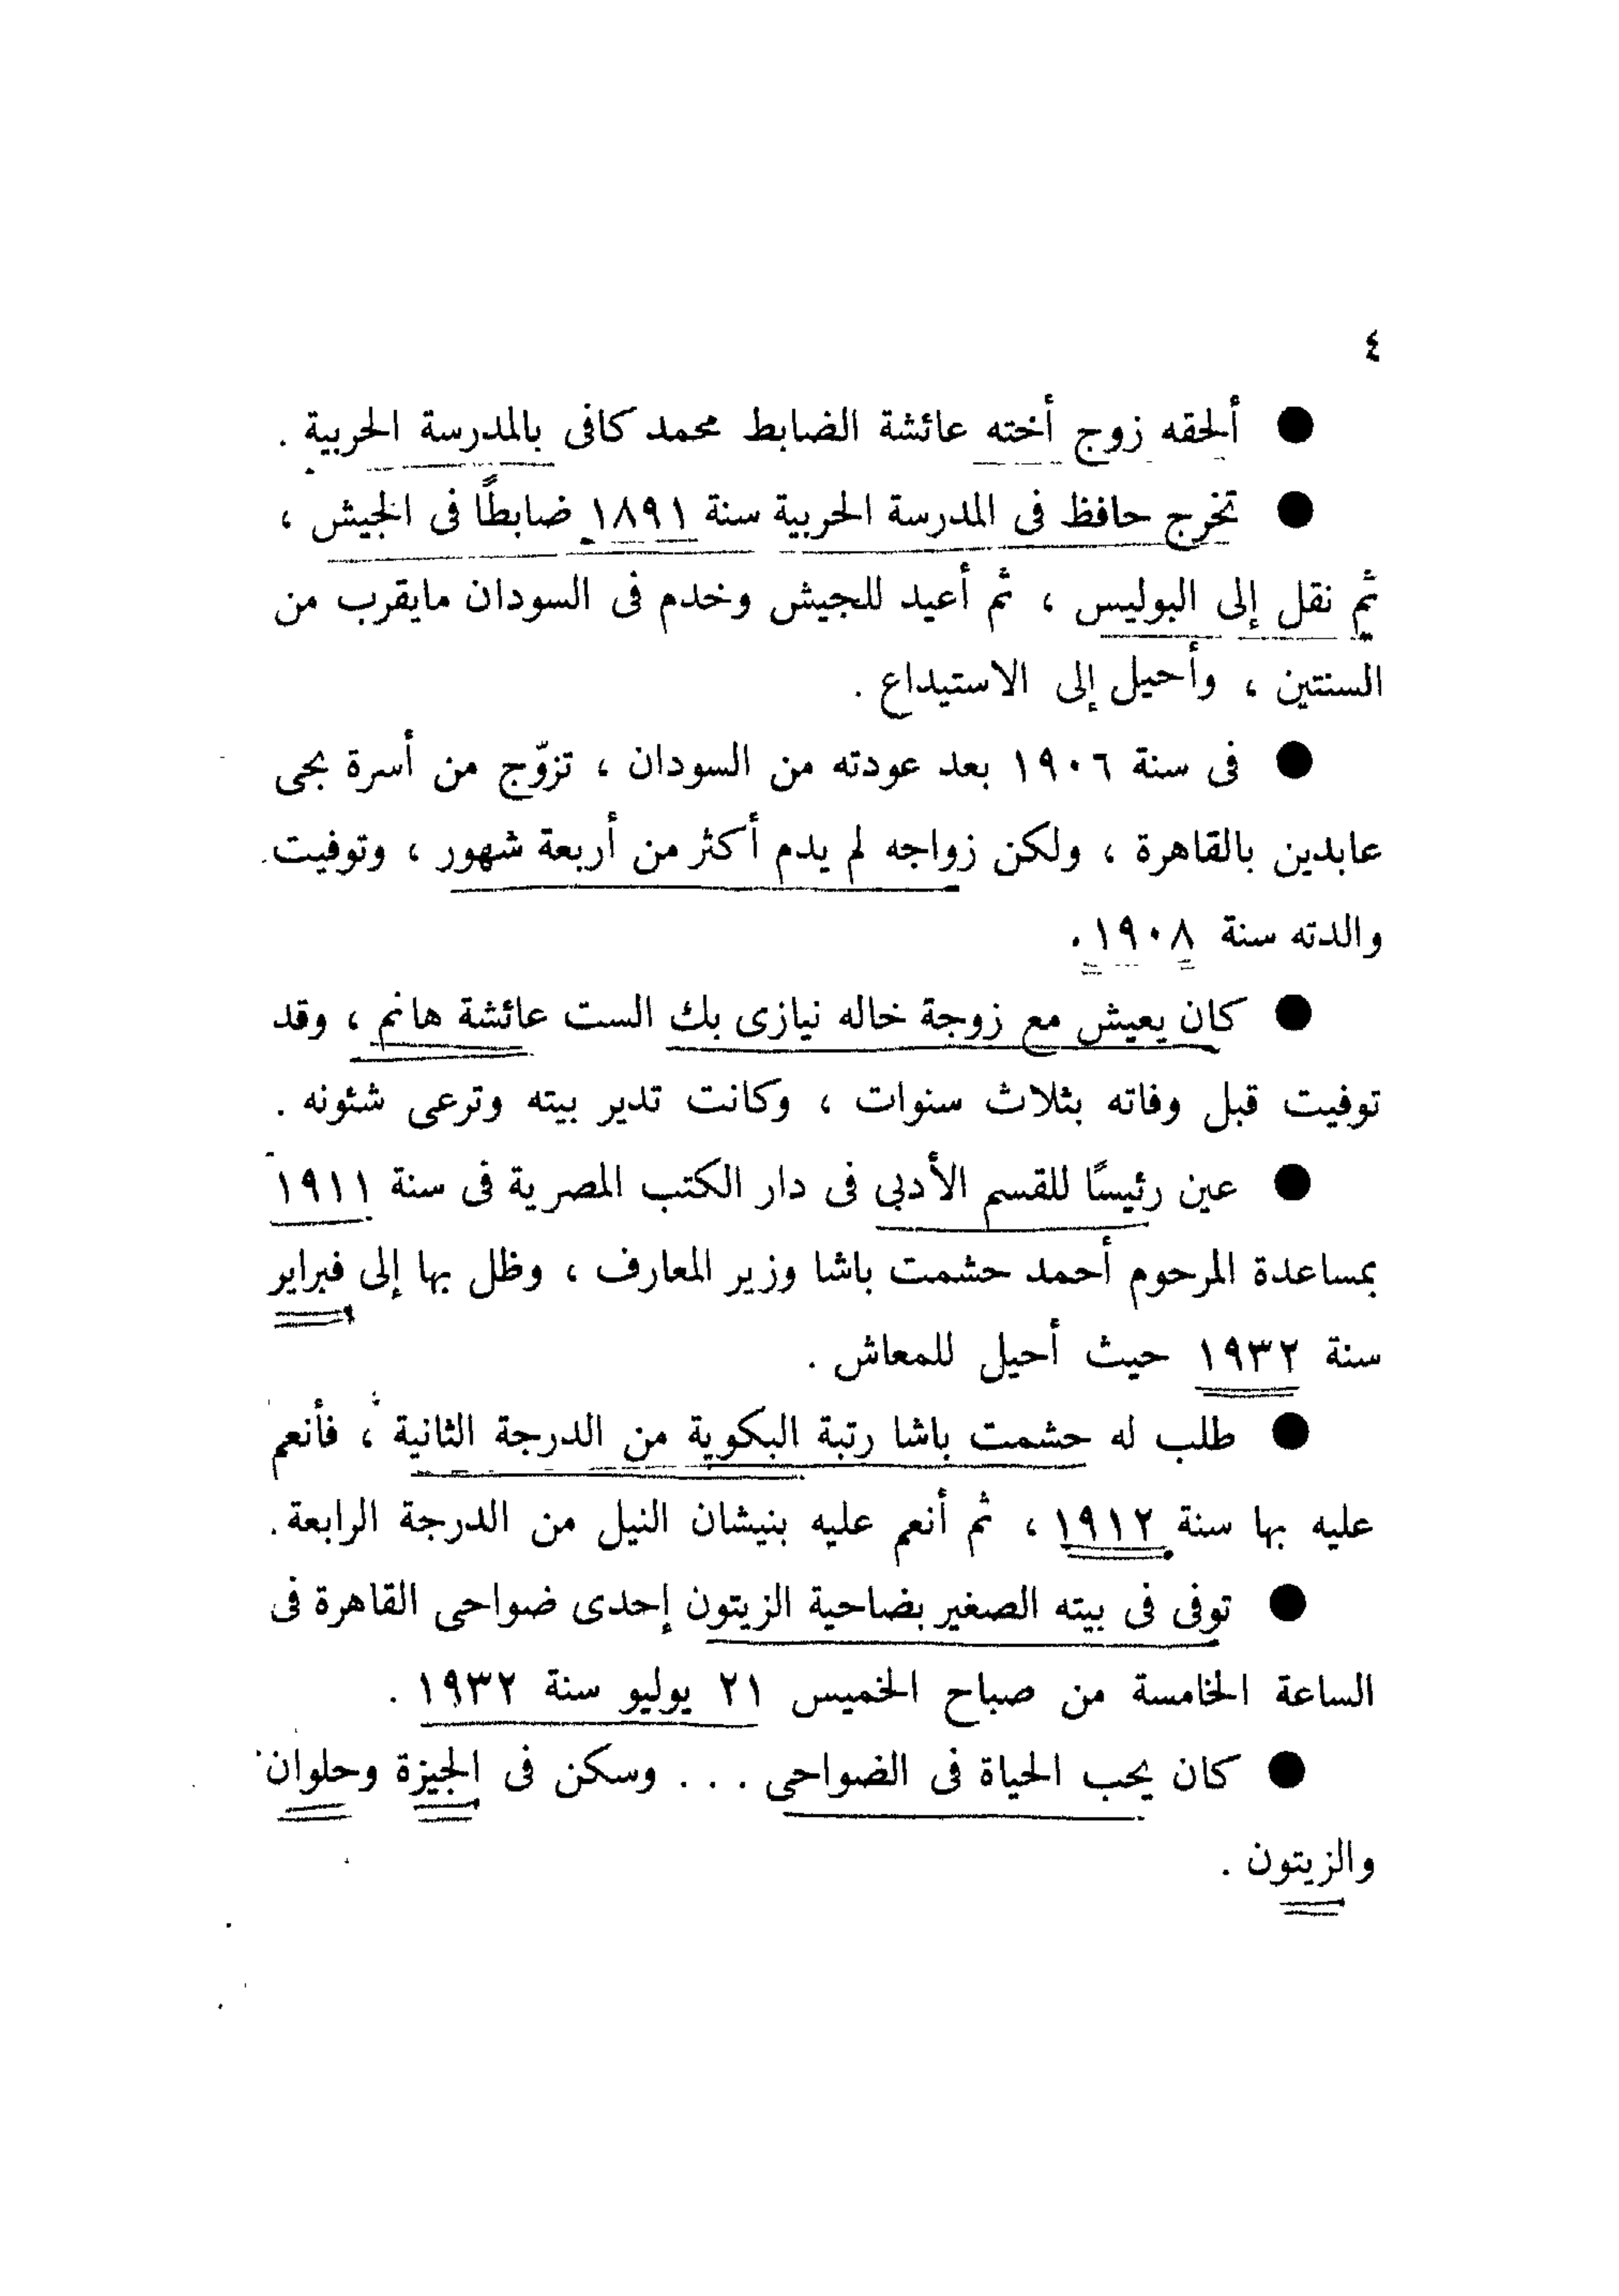 ٤
● ألحقه زوج أخته عائشة الضابط محمد كافى بالمدرسة الحربية .
● تخرج حافظ فى المدرسة الحربية سنة ١٨٩١ ضابطًا فى الجيش ،
ثم نقل إلى البوليس ، ثم أعيد للجيش وخدم فى السودان مايقرب من
السنتين ، وأحيل إلى الاستيداع .
● فى سنة ١٩٠٦ بعد عودته من السودان ، تزوّج من أسرة بحى
عابدين بالقاهرة ، ولكن زواجه لم يدم أكثر من أربعة شهور ، وتوفيت
والدته سنة ١٩٠٨ .
● كان يعيش مع زوجة خاله نيازى بك الست عائشة هانم ، وقد
توفيت قبل وفاته بثلاث سنوات ، وكانت تدير بيته وترعى شئونه .
● عين رئيسًا للقسم الأدبى فى دار الكتب المصرية فى سنة ١٩١١
بمساعدة المرحوم أحمد حشمت باشا وزير المعارف ، وظل بها إلى فبراير
سنة ١٩٣٢ حيث أحيل للمعاش .
● طلب له حشمت باشا رتبة البكوية من الدرجة الثانية ، فأنعم
عليه بها سنة ١٩١٢ ، ثم أنعم عليه بنيشان النيل من الدرجة الرابعة .
● توفى فى بيته الصغير بضاحية الزيتون إحدى ضواحى القاهرة فى
الساعة الخامسة من صباح الخميس ٢١ يوليو سنة ١٩٣٢ .
● كان يحب الحياة فى الضواحى . . . وسكن فى الجيزة وحلوان
والزيتون .